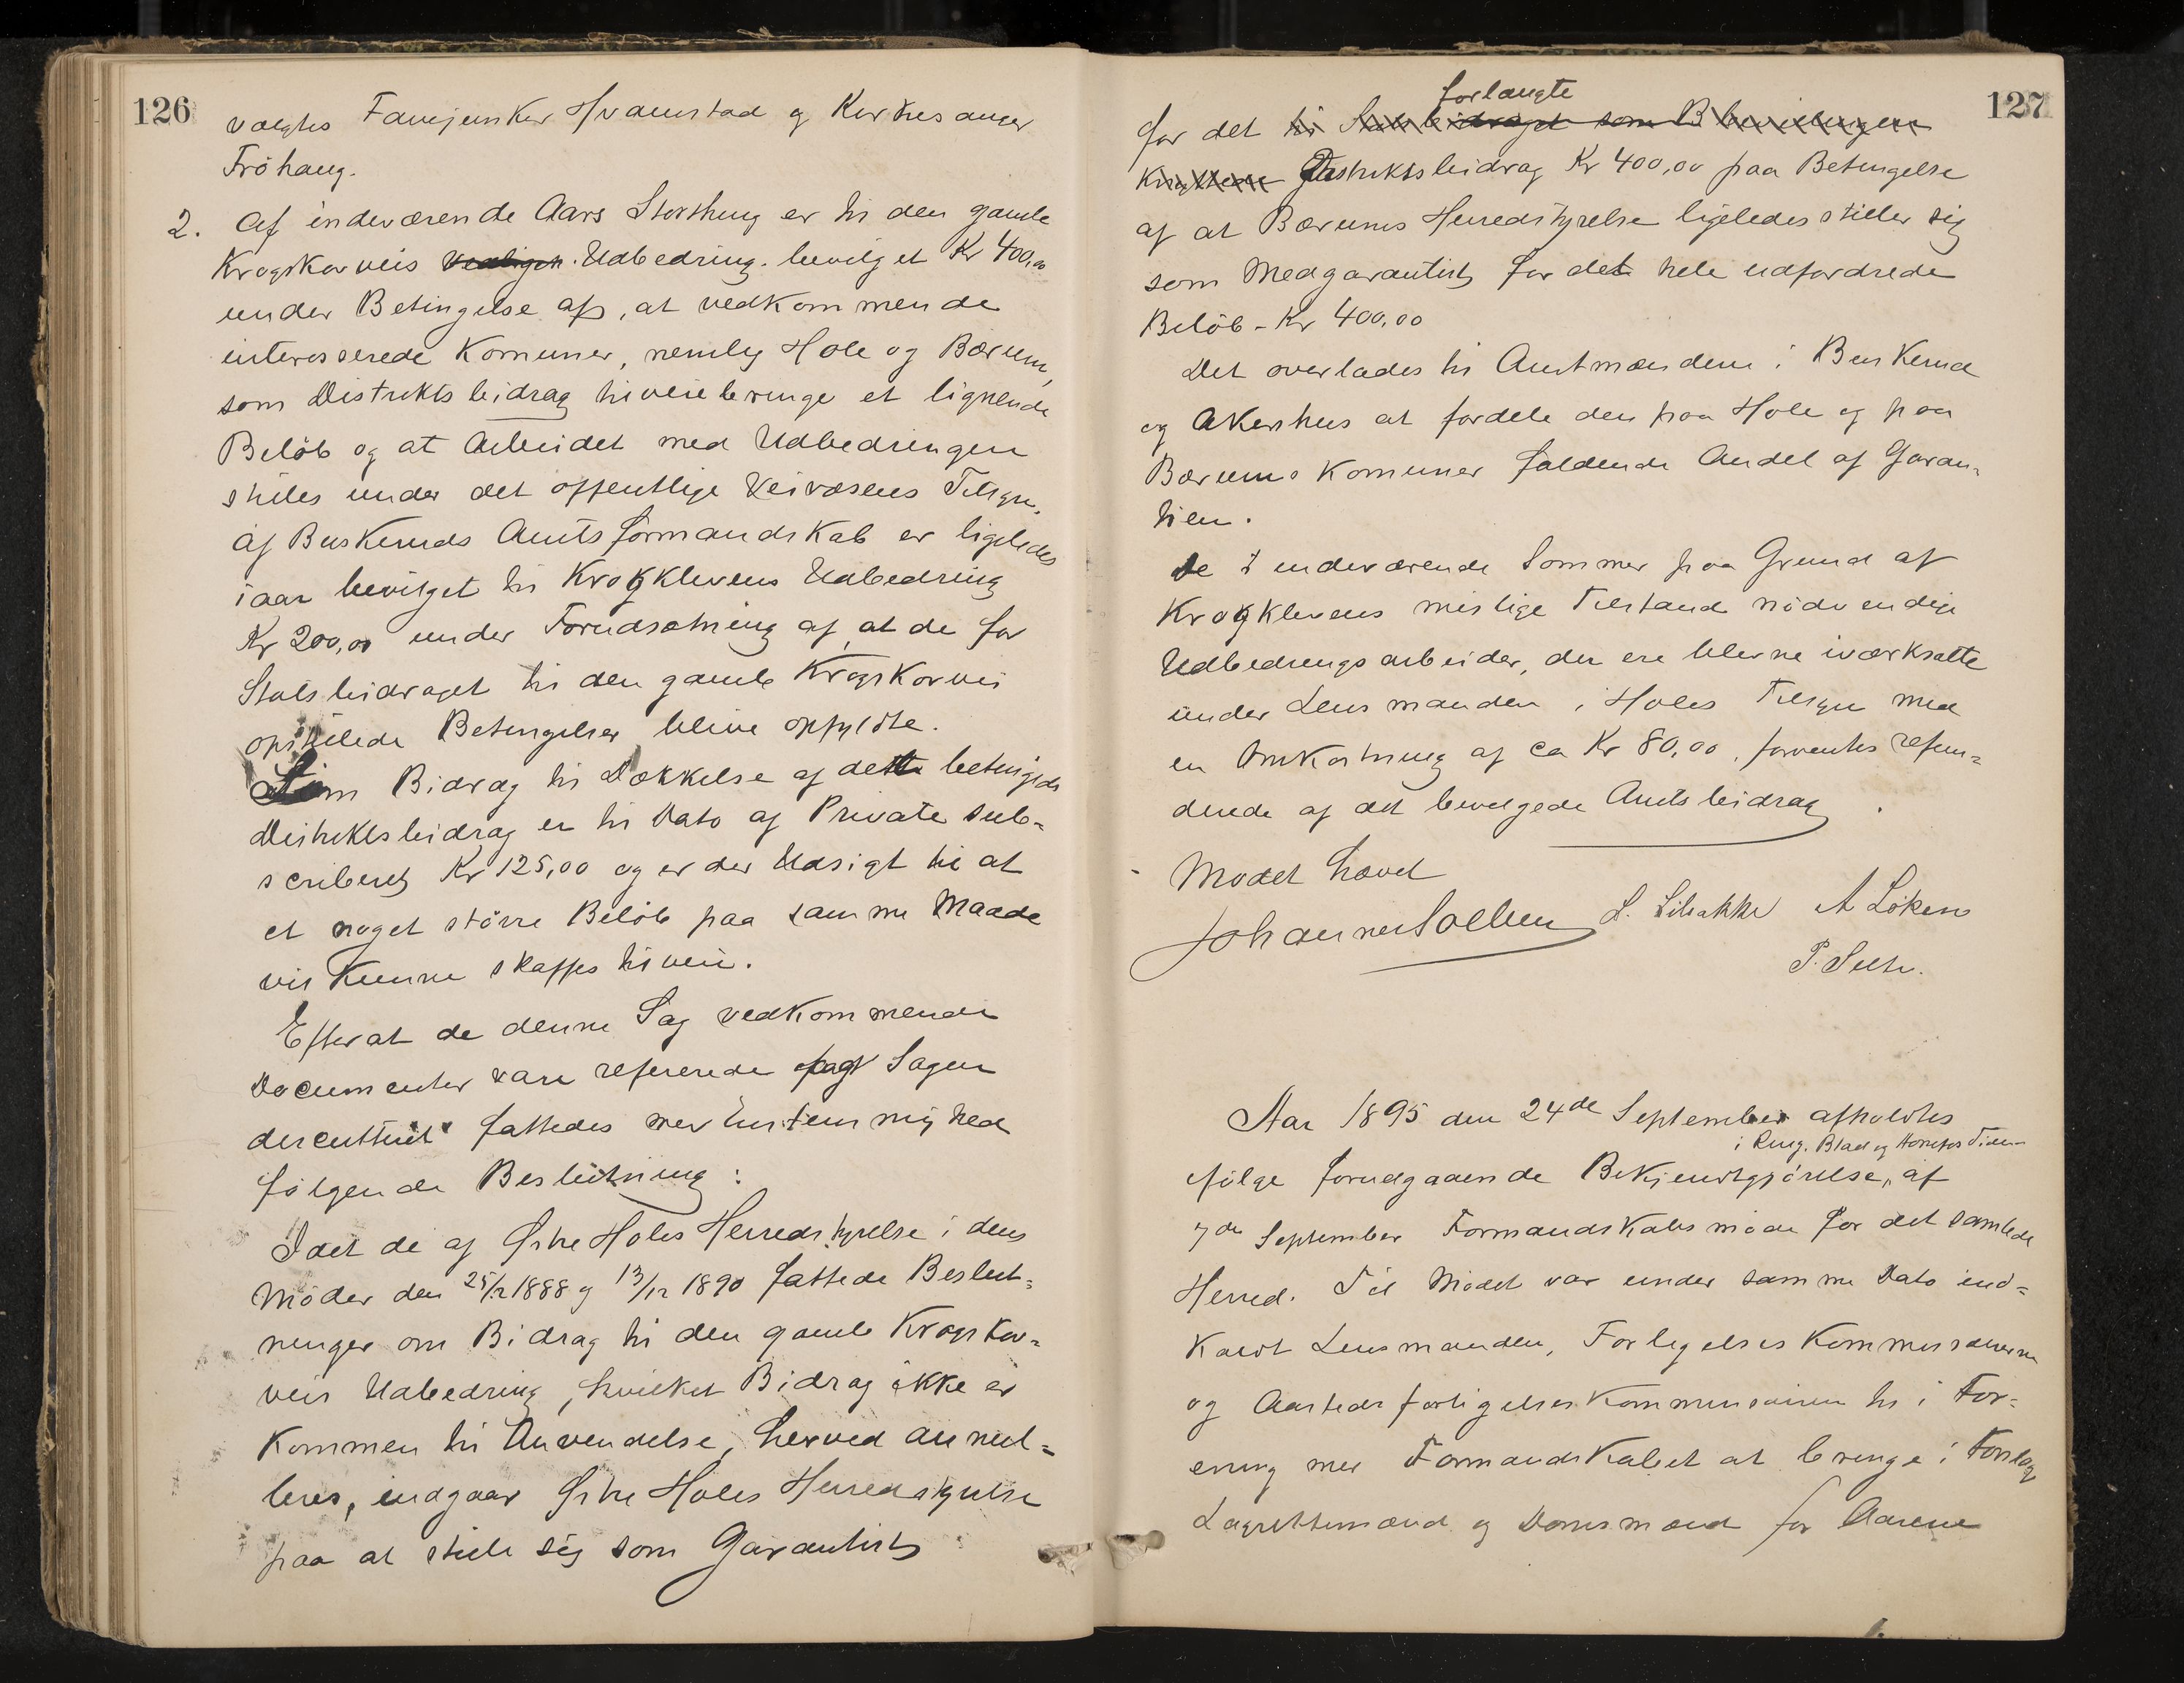 126
valgtes Fanejunker Hvamstad og Kirkesanger
Fröhaug.
2. Af indeværende Aars Storthing er til den gamle
Krogskovveis Udbedring bevilget Kr 400,00
under Betingelse af, at vedkommende
interesserede Komuner, nemlig Hole og Bærum,
som Distriktsbidrag tilveiebringe et lignende
Belöb og at Arbeidet med Udbedringen
stilles under det offentlige Veivæsens Tilsyn.
Af Buskeruds Amtsformandskab er ligeledes
iaar bevilget til Krogklevens Udbedring
Kr 200,00 under Forudsætning af at de for
Statsbidraget til den gamle Krogskovvei
opstillede Betingelser blive opfyldte.
Som Bidrag til Dækkelse af dette betingede
Distriktsbidrag er til Dato af Private sub-
scriberet Kr 125,00 og er der Udsigt til at
et noget större Belöb paa samme Maade
vil kunne skaffes tilveie.
Efterat de denne Sag vedkommende
Documenter vare refererede og Sagen
discutteret fattedes mod Enstemmighed
fölgende Beslutning:
Idet de af Østre Holes Herredstyrelse i dens
Möder den 25/2 1888 og 13/12 1890 fattede Beslut-
ninger om Bidrag til den gamle Krogskov-
veis Udbedring, hvilket Bidrag ikke er
kommen til Anvendelse, herved annul-
leres, indgaar Østre Holes Herredstyrelse
paa at stille sig som Garantist
127
forlangte
for det til Statsbidraget som B bevilingen
Distriktsbidrag Kr 400,00 paa Betingelse
af at Bærums Herredstyrelse ligeledes stiller sig
som Medgarantist for det hele udfordrede
Belöb - Kr 400,00
Det overlades til Amtmændene i Buskerud
og Akershus at fordele den paa Hole og paa
Bærums Komuner faldende Andel af Garan-
tien.
De i indeværende Sommer paa Grund af
Krogklevens mislige Tilstand nödvendige
Udbedringsarbeider, der ere blevne iværksatte
under Lensmanden i Holes Tilsyn med
en Omkostning af ca Kr 80,00, forventes refun-
derede af det bevilgede Amtsbidrag.
Mödet hævet
Johannes Sollien L. Libakke A Löken
P. Selte.
Aar 1895 den 24de September afholdtes
i Ring. Blad og Hönefos Tidene
ifölge forudgaaende Bekjendtgjörelse, af
7de September Formandskabsmöde for det samlede
Herred. Til Mödet var under samme Dato ind-
kaldt Lensmanden, Forligelses Kommissærerne
og Aastedsforligelses Kommissairen til i For-
ening med Formandskabet at bringe i Forslag
Lagrettemænd og Domsmænd for Aarene